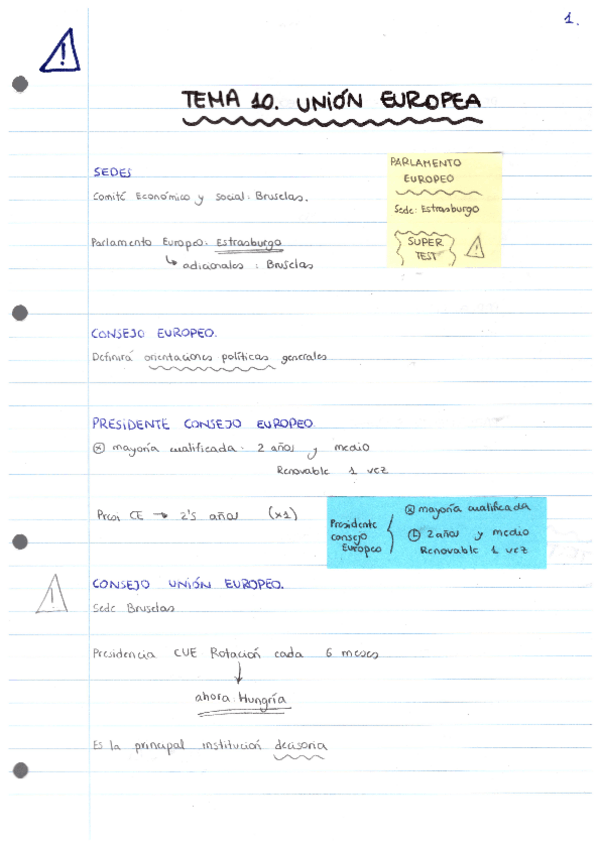 1.
TEMA 10. UNIÓN EUROPEA
SEDES
Comité Económico y social: Bruselas.
Parlamento Europeo: Estrasburgo
↳ adicionales : Bruselas
PARLAMENTO
EUROPEO
Sede: Estrasburgo
SUPER
TEST
CONSEJO EUROPEO.
Definirá orientaciones políticas generales
PRESIDENTE CONSEJO EUROPEO
mayoría cualificada. 2 años y medio
Renovable 1 vez
Presi CE → 2's años (x1)
Presidente
consejo
Europeo
mayoría cualificada
2 años y medio
Renovable 1 vez
CONSEJO UNIÓN EUROPEO.
Sede Bruselas
Presidencia CUE Rotación cada 6 meses
ahora: Hungría
Es la principal institución decisoria